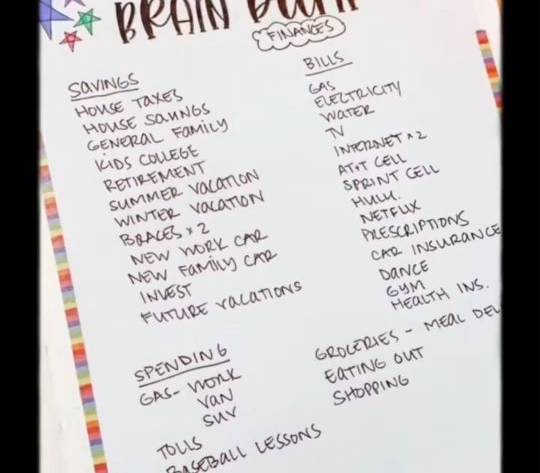 BRAIN DUMP
FINANCES
SAVINGS
HOUSE TAXES
HOUSE SAVINGS
GENERAL FAMILY
KIDS COLLEGE
RETIREMENT
SUMMER VACATION
WINTER VACATION
BRACES × 2
NEW WORK CAR
NEW FAMILY CAR
INVEST
FUTURE VACATIONS
BILLS
GAS
ELECTRICITY
WATER
TV
INTERNET × 2
AT&T CELL
SPRINT CELL
HULU
NETFLIX
PRESCRIPTIONS
CAR INSURANCE
DANCE
GYM
HEALTH INS.
SPENDING
GAS- WORK
VAN
SUV
TOLLS
BASEBALL LESSONS
GROCERIES - MEAL DEL
EATING OUT
SHOPPING